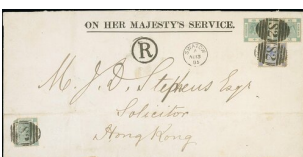 ON HER MAJESTY'S SERVICE.
R
SWATOW
M. J. D. Stephens Esqr.
Solicitor
Hong Kong